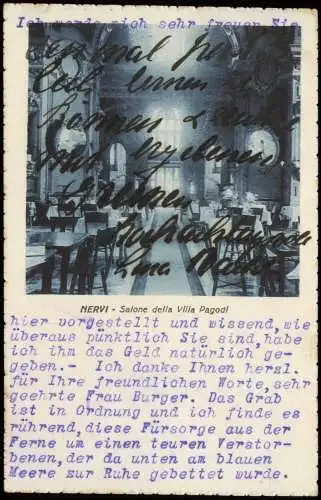 Ich werde mich sehr freuen Sie
einmal
lernen zu
können
mit ergebenen
Grüssen
NERVI - Salone della Villa Pagodi
hier vorgestellt und wissend, wie
überaus pünktlich Sie sind, habe
ich ihm das Geld natürlich ge-
geben.- Ich danke Ihnen herzl.
für Ihre freundlichen Worte, sehr
geehrte Frau Burger. Das Grab
ist in Ordnung und ich finde es
rührend, diese Fürsorge aus der
Ferne um einen teuren Verstor-
benen, der da unten am blauen
Meere zur Ruhe gebettet wurde.